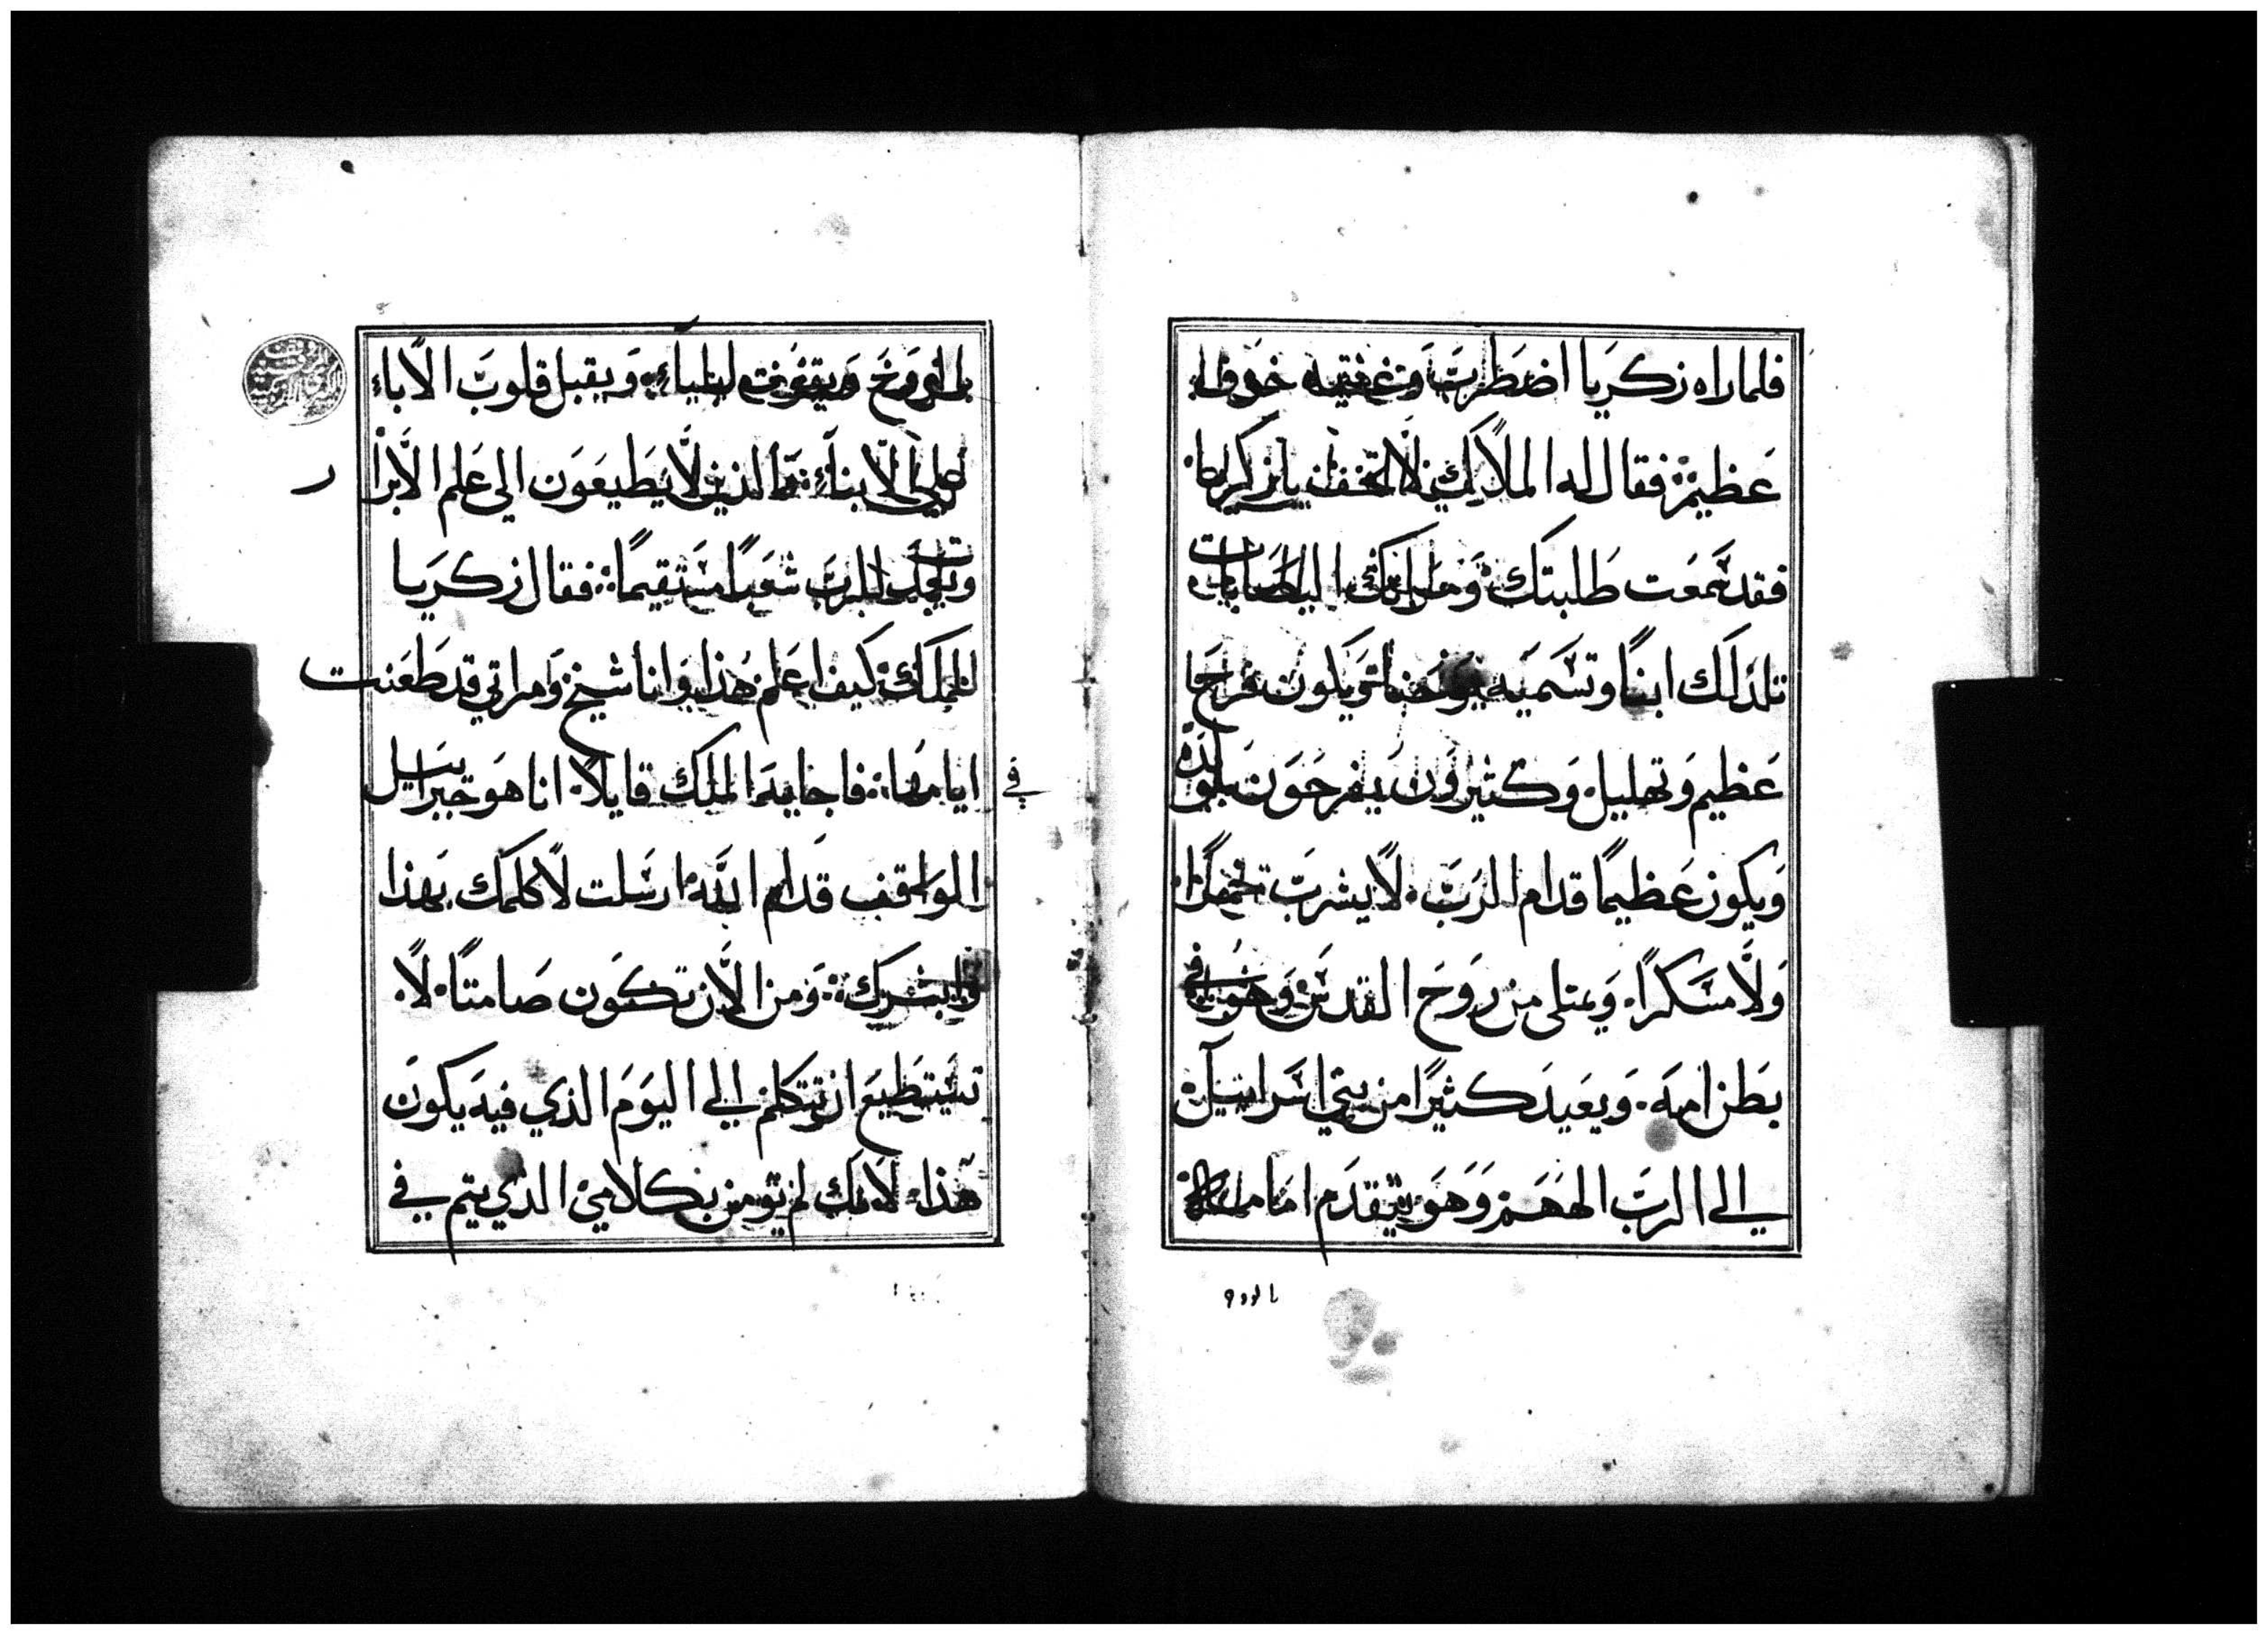 فلما راه زكريا اضطرب وغشيه خوف
عظيم فقال له الملاك لا تخف يا زكريا
فقد سمعت طلبتك وامراتك اليصابات
تلد لك ابنًا وتسميه يوحنا ويكون فرح
عظيم وتهليل وكثيرون يفرحون بمولده
ويكون عظيمًا قدام الرب لا يشرب خمرًا
ولا مسكرًا ويمتلى من روح القدس وهو في
بطن امه ويعيد كثيرًا من بني اسراييل
الى الرب الههم وهو يتقدم امامه
بالروح
بالروح وبقوت ايلياء ويقبل قلوب الاباء
على الابناء والذين لا يطيعون الى علم الابرار
للرب شعبًا مستقيمًا فقال زكريا
للملاك كيف اعلم هذا وانا شيخ ومراتي قد طعنت
في ايامها فاجابه الملاك قايلًا انا هو جبراييل
الواقف قدام الله ارسلت لاكلمك بهذا
وابشرك ومن الان تكون صامتًا لا
تستطيع ان تتكلم الى اليوم الذي فيه يكون
هذا لانك لم تومن بكلامي الذي يتم في